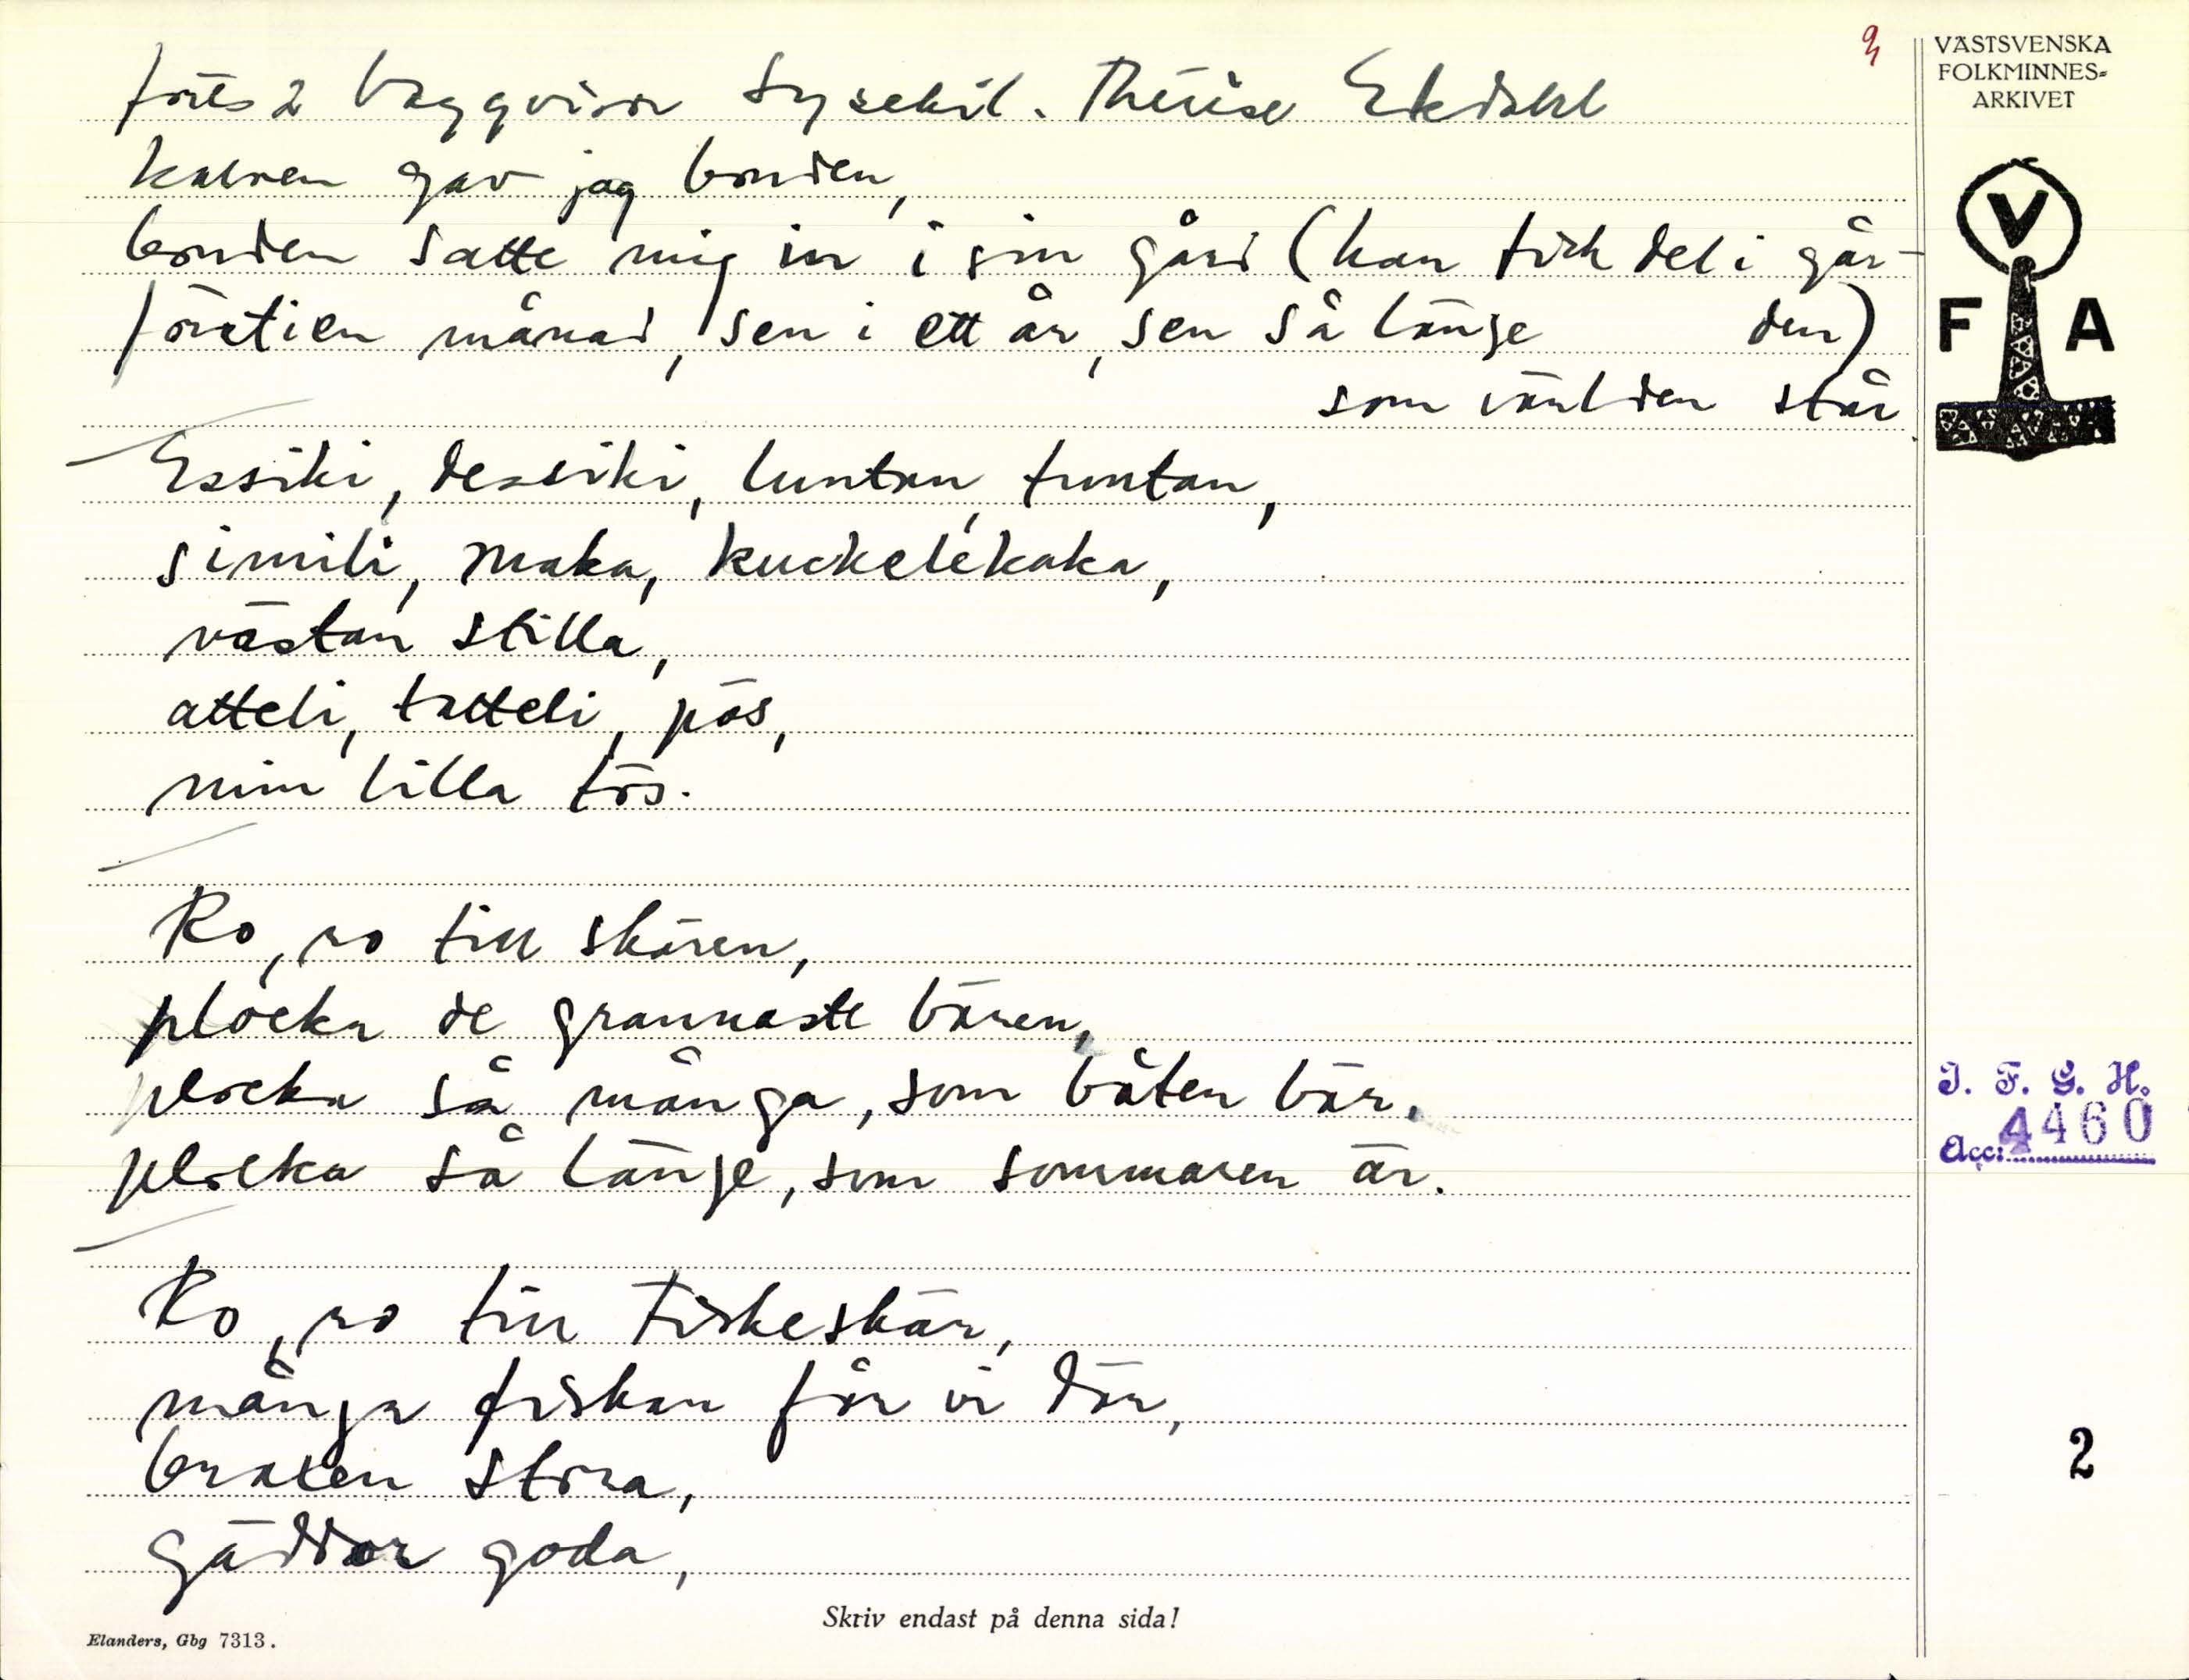 forts 2 Vaggvisor Lysekil. Thérèse Ekdahl
kalven gav jag bonden,
bonden satte mig in i sin gård (han fick del i går-
först i en månad, sen i ett år, sen så länge den)
som världen står.
Essiki, dessiki, luntan, tuntan,
simili, maka, kuckelikaka,
västan stilla,
atteli, tatteli, pös,
min lilla tös.
Ro, ro till skären,
plocka de grannaste bären,
plocka så många, som båten bär,
plocka så länge, som sommaren är.
Ro, ro till Fiskeskär,
många fiskar får vi där,
braxen stora,
gäddor goda,
Skriv endast på denna sida!
Elanders, Gbg 7313.
VÄSTSVENSKA
FOLKMINNES-
ARKIVET
V
F A
I. F. G. H.
Acc: 4460
2